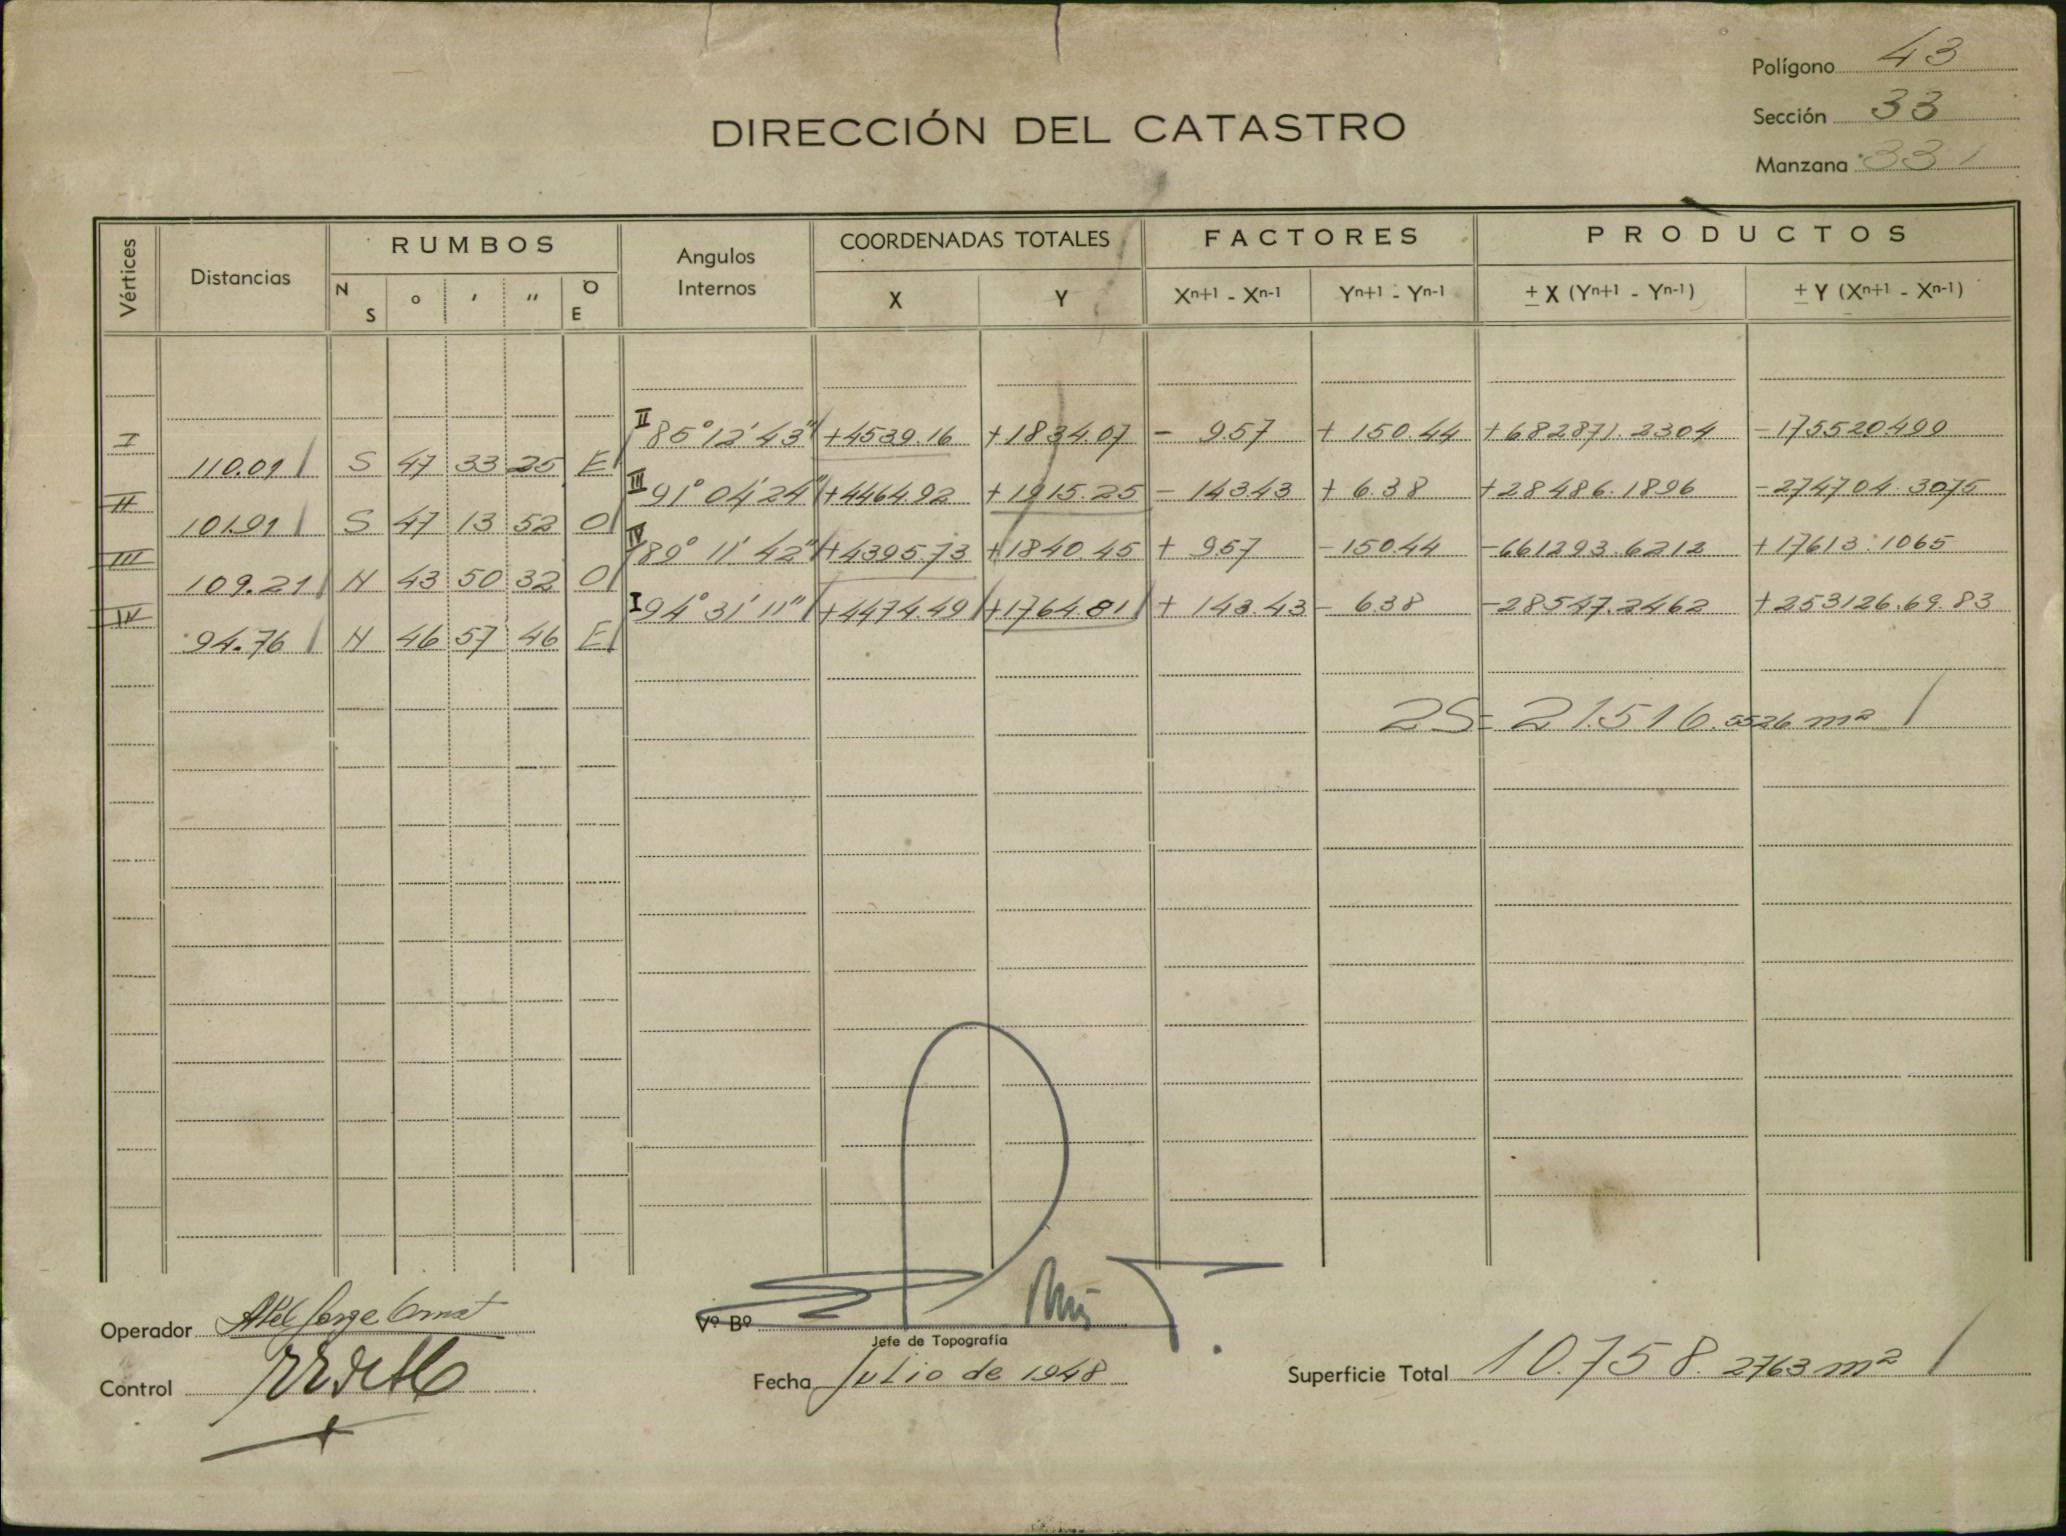 Polígono 43
DIRECCIÓN DEL CATASTRO
Sección 33
Manzana 331
Vértices Distancias RUMBOS N S ° ' " O E Angulos Internos COORDENADAS TOTALES X Y FACTORES Xn+1 - Xn-1 Yn+1 - Yn-1 PRODUCTOS ± X (Yn+1 - Yn-1) ± Y (Xn+1 - Xn-1)
I II 85° 12' 43" +4539.16 +1834.07 - 9.57 + 150.44 +682871.2304 -17552.0499
110.01 S 47 33 25 E
II III 91° 04' 24" +4464.92 +1915.25 - 143.43 + 6.38 +28486.1896 -274704.3075
101.91 S 47 13 52 O
III IV 89° 11' 42" +4395.73 +1840.45 + 9.57 -150.44 -661293.6212 +17613.1065
109.21 N 43 50 32 O
IV I 94° 31' 11" +4474.49 +1764.81 + 143.43 - 6.38 -28547.2462 +253126.69.83
94.76 N 46 57 46 E
2S= 21.516.5526 m²
Operador Abel Jorge
Vº Bº
Jefe de Topografía
Control
Fecha Julio de 1948
Superficie Total 10.758.2763 m²